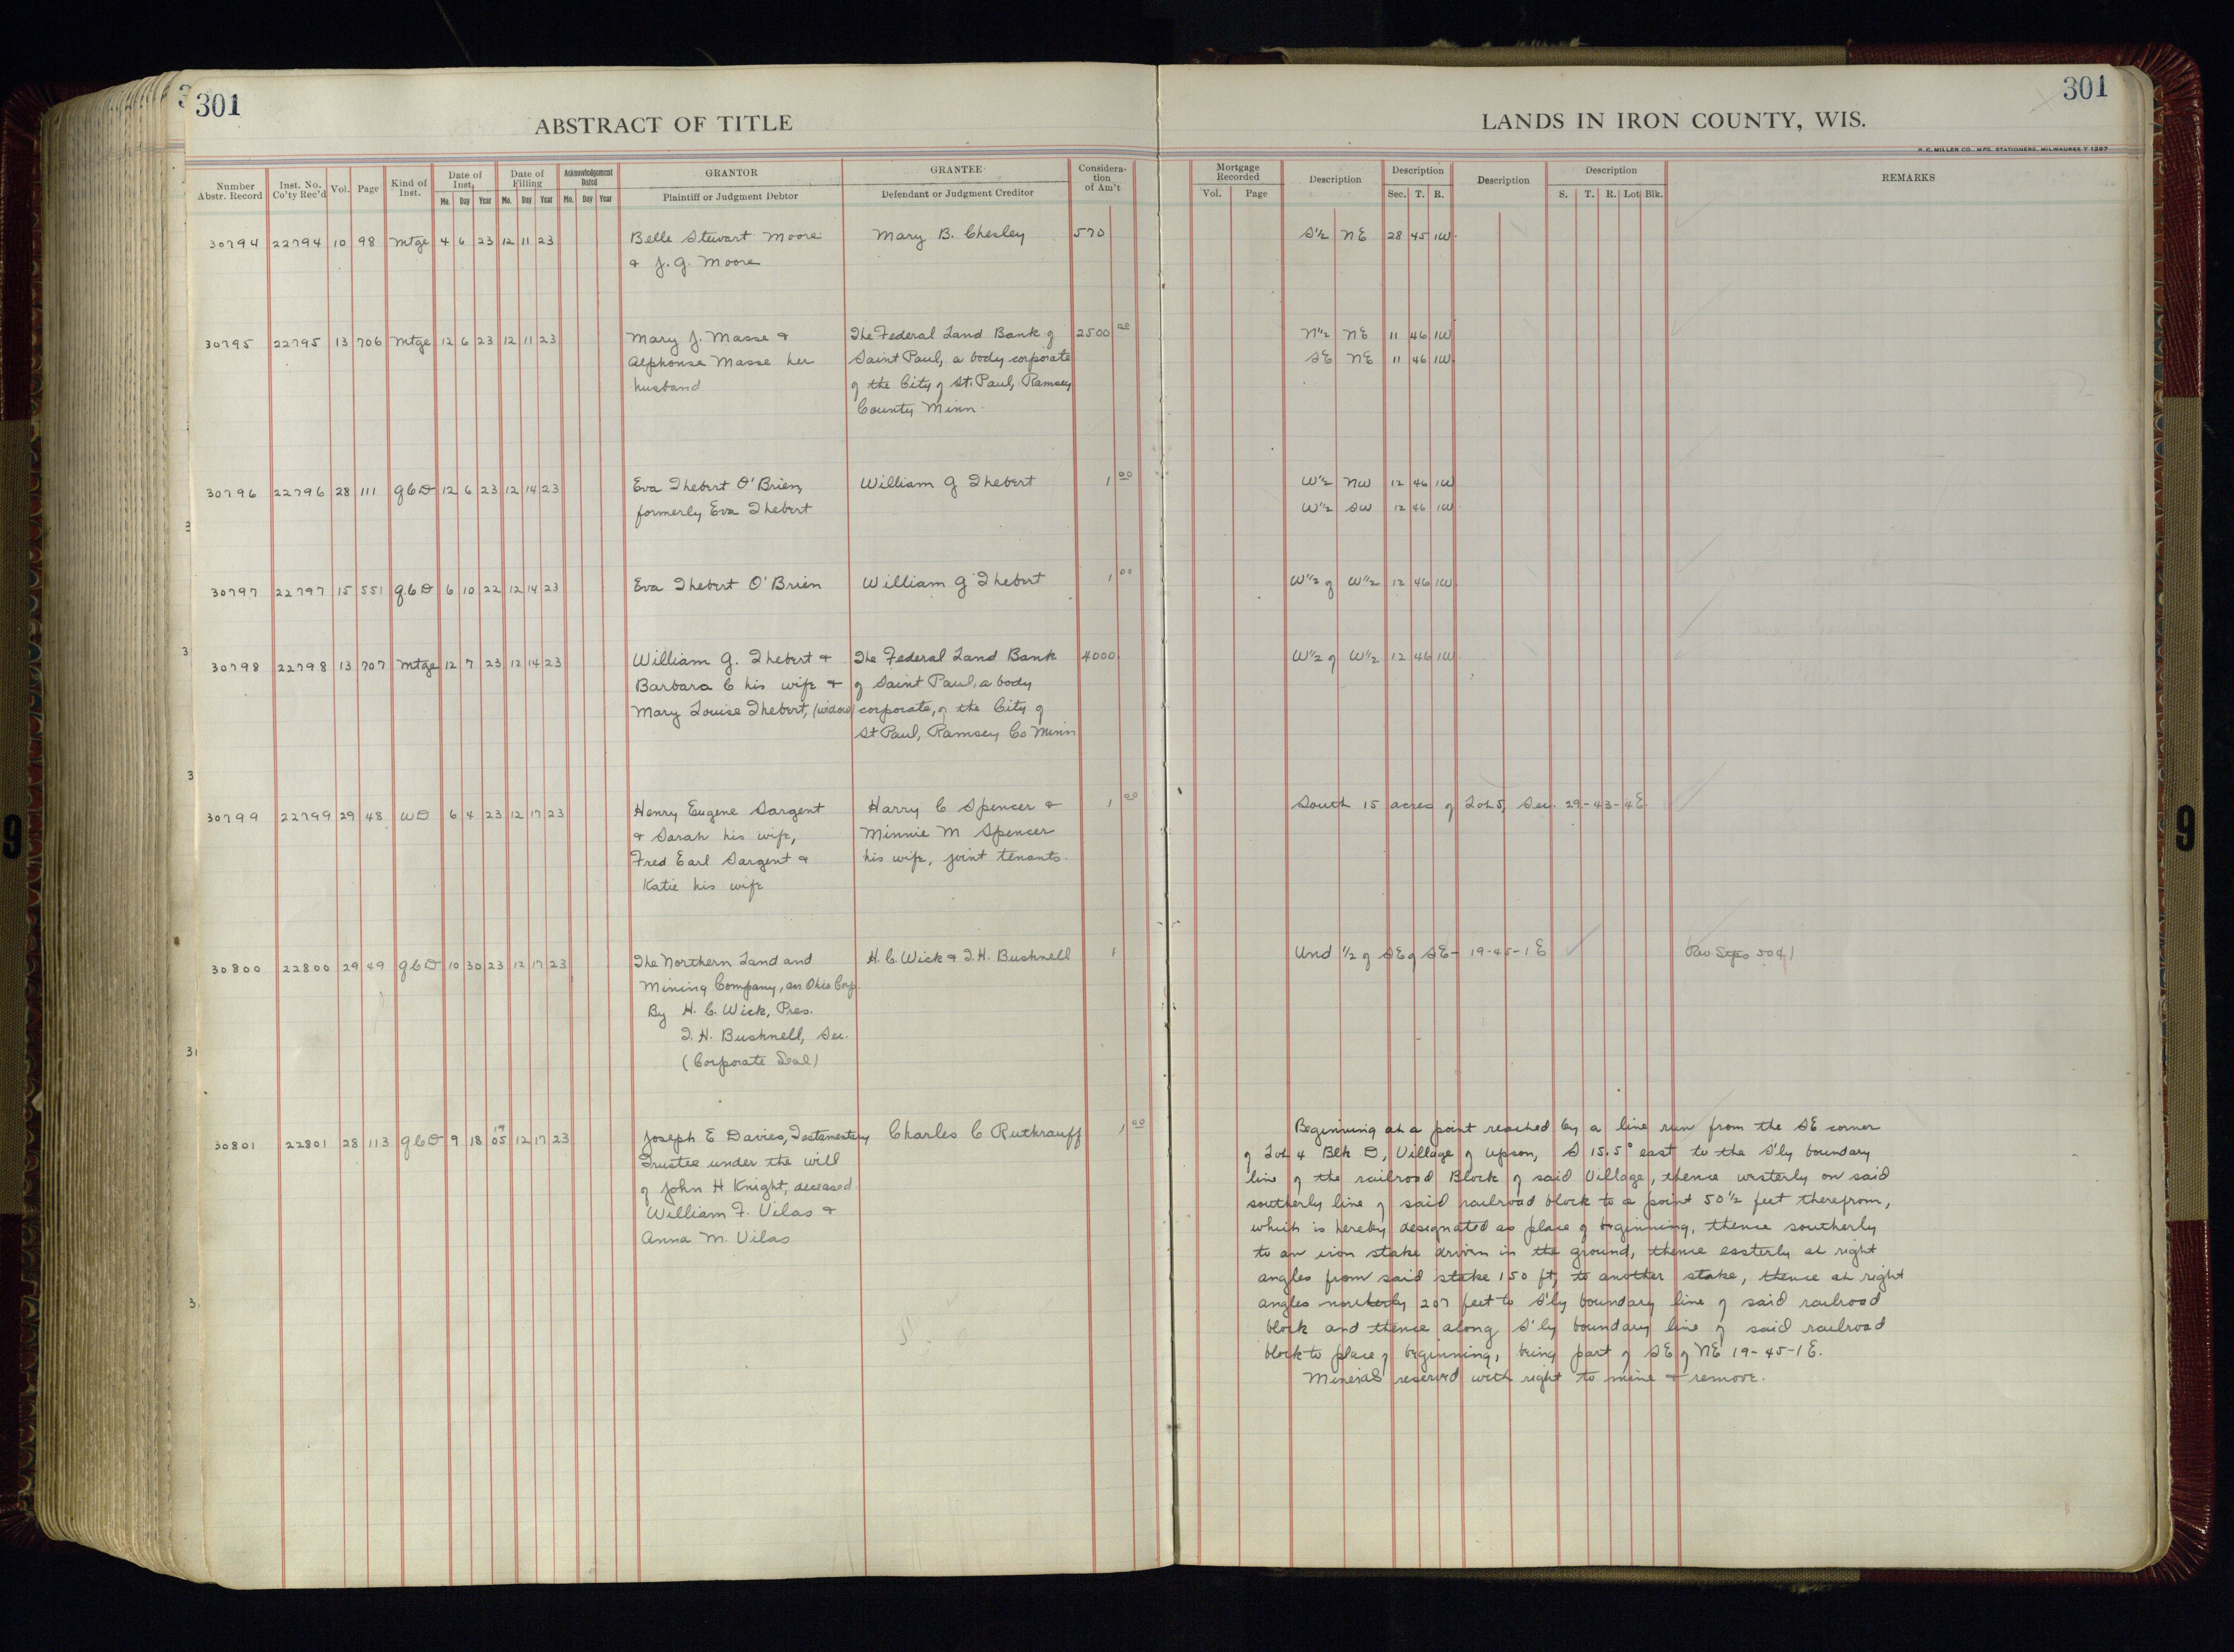 301
301
ABSTRACT OF TITLE
LANDS IN IRON COUNTY, WIS.
H. C. MILLER CO. MFG. STATIONERS, MILWAUKEE
Number Abstr. Record Inst. No. Co'ty Rec'd Vol. Page Kind of Inst. Date of Inst. Mo. Day Year Date of Filling Mo. Day Year Acknowledgement Dated Mo. Day Year GRANTOR Plaintiff or Judgment Debtor GRANTEE Defendant or Judgment Creditor Considera-tion of Am't
Mortgage Recorded Vol. Page Description Description Sec. T. R. Description Description S. T. R. Lot Blk. REMARKS
30794 22794 10 98 Mtge 4 6 23 12 11 23 Belle Stewart Moore Mary B. Chesley 570 S½ NE 28 45 1W
& J. G. Moore
30795 22795 13 706 Mtge 12 6 23 12 11 23 Mary J. Masse & The Federal Land Bank of 2500 00 N½ NE 11 46 1W
Alphonse Masse her Saint Paul, a body corporate SE NE 11 46 1W
husband of the City of St. Paul, Ramsey
County Minn.
30796 22796 28 111 QCD 12 6 23 12 14 23 Eva Thebert O'Brien, William G Thebert 1 00 W½ NW 12 46 1W
formerly Eva Thebert W½ SW 12 46 1W
30797 22797 15 551 QCD 6 10 22 12 14 23 Eva Thebert O'Brien William G Thebert 1 00 W½ of W½ 12 46 1W
30798 22798 13 707 Mtge 12 7 23 12 14 23 William G. Thebert & The Federal Land Bank 4000 W½ of W½ 12 46 1W
Barbara C his wife & of Saint Paul, a body
Mary Louise Thebert, (widow) corporate, of the City of
St Paul, Ramsey Co Minn
30799 22799 29 48 WD 6 4 23 12 17 23 Henry Eugene Sargent Harry C Spencer & 1 00 South 15 acres of Lot 5, Sec. 29-43-4E
& Sarah his wife, Minnie M Spencer
Fred Earl Sargent & his wife, joint tenants.
Katie his wife
30800 22800 29 49 QCD 10 30 23 12 17 23 The Northern Land and H. C. Wick & T. H. Bushnell 1 Und ½ of SE of SE- 19-45-1E Rev Stps 50¢
Mining Company, an Ohio Corp.
By H. C. Wick, Pres.
T. H. Bushnell, Sec.
(Corporate Seal)
30801 22801 28 113 QCD 9 18 1905 12 17 23 Joseph E Davies, Testamentary Charles C Ruthrauff 1 00 Beginning at a point reached by a line run from the SE corner
Trustee under the will of Lot 4 Blk D, Village of Upson, S 15.5° east to the S'ly boundary
of John H Knight, deceased line of the railroad Block of said Village, thence westerly on said
William F. Vilas & southerly line of said railroad block to a point 50½ feet therefrom,
Anna M. Vilas which is hereby designated as place of beginning, thence southerly
to an iron stake driven in the ground, thence easterly at right
angles from said stake 150 ft, to another stake, thence at right
angles northerly 207 feet to S'ly boundary line of said railroad
block and thence along S'ly boundary line of said railroad
block to place of beginning, being part of SE of NE 19-45-1E.
Minerals reserved with right to mine & remove.
9
9